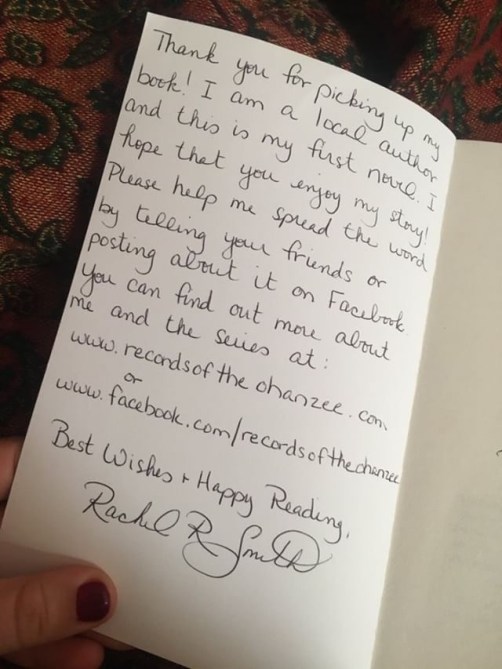 Thank you for picking up my
book! I am a local author
and this is my first novel. I
hope that you enjoy my story!
Please help me spread the word
by telling your friends or
posting about it on Facebook
You can find out more about
me and the series at:
www.recordsoftheohanzee.com
or
www.facebook.com/recordsoftheohanzee
Best Wishes + Happy Reading,
Rachel R Smith